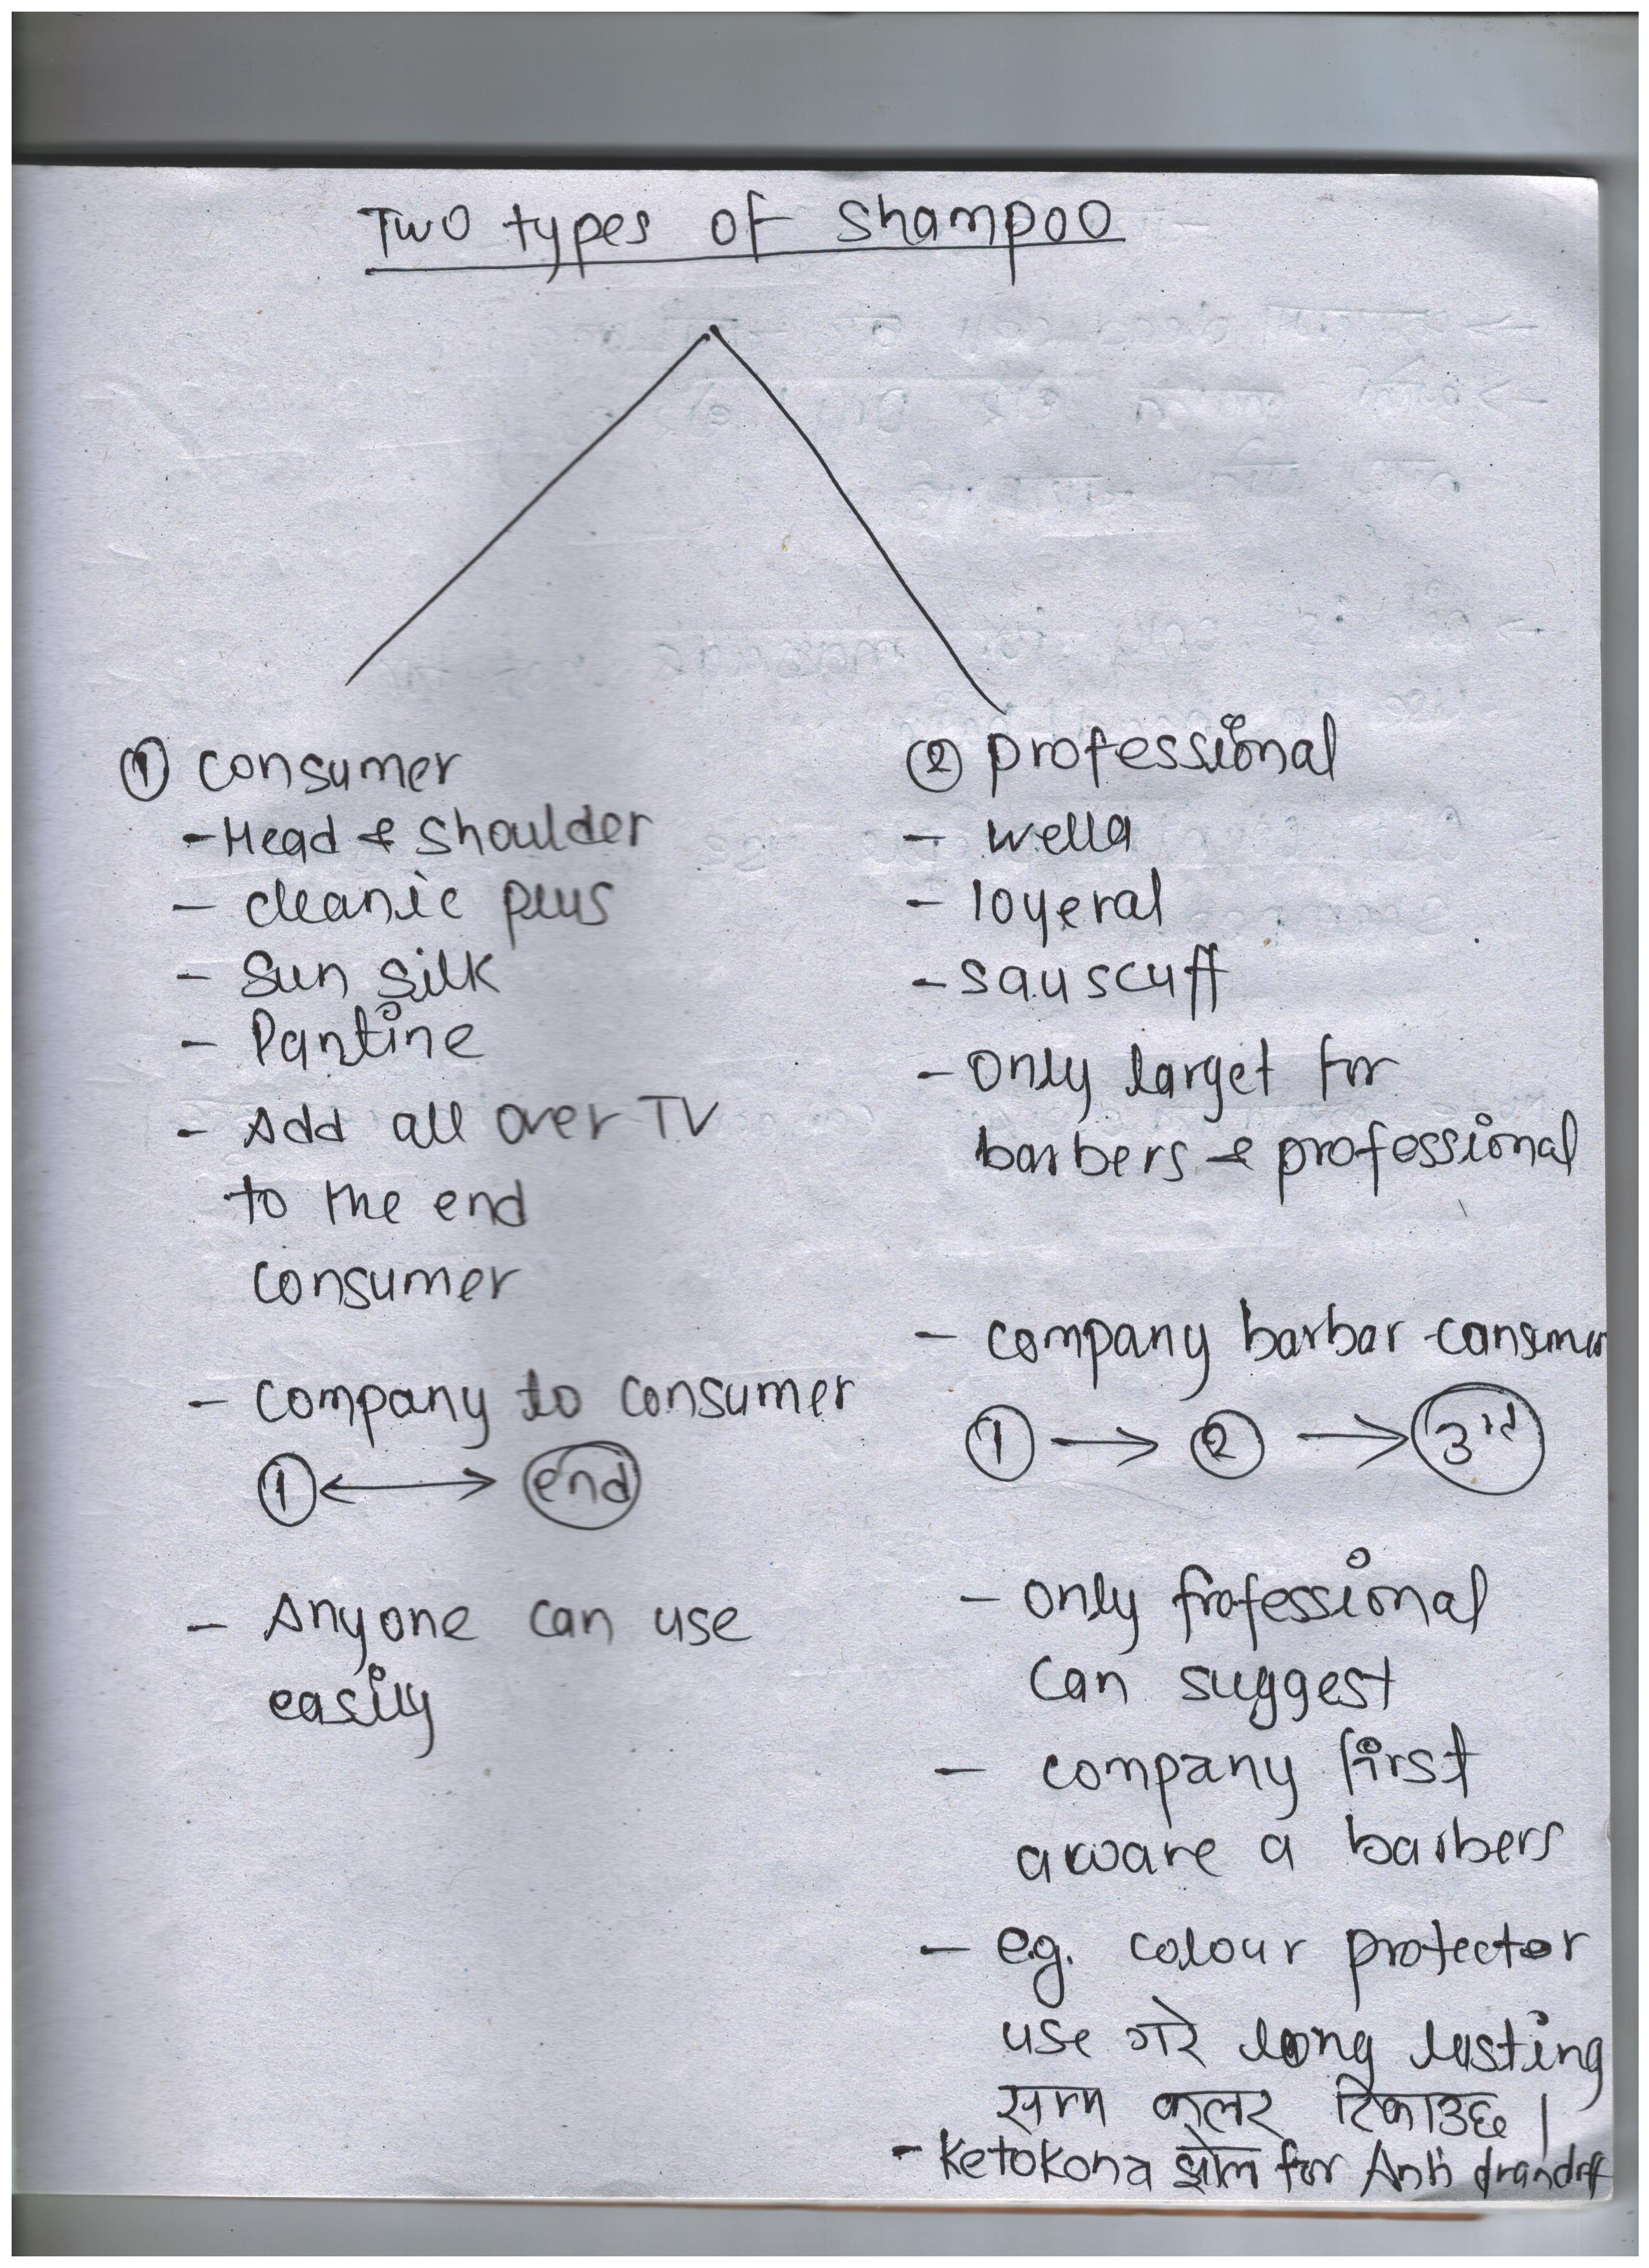 Two types of Shampoo
① consumer
- Head & Shoulder
- cleanic plus
- Sun silk
- Pantine
- Add all over TV
to the end
consumer
- company to consumer
① ⟷ end
- Anyone can use
easily
② professional
- wella
- loyeral
- sauscuff
- only target for
barbers & professional
- company barbar consumer
① → ② → 3rd
- only professional
can suggest
- company first
aware a barbers
- e.g. colour protector
use गरे long lasting
सम्म कलर टिकाउछ।
- Ketokona झोल for Anti drandff